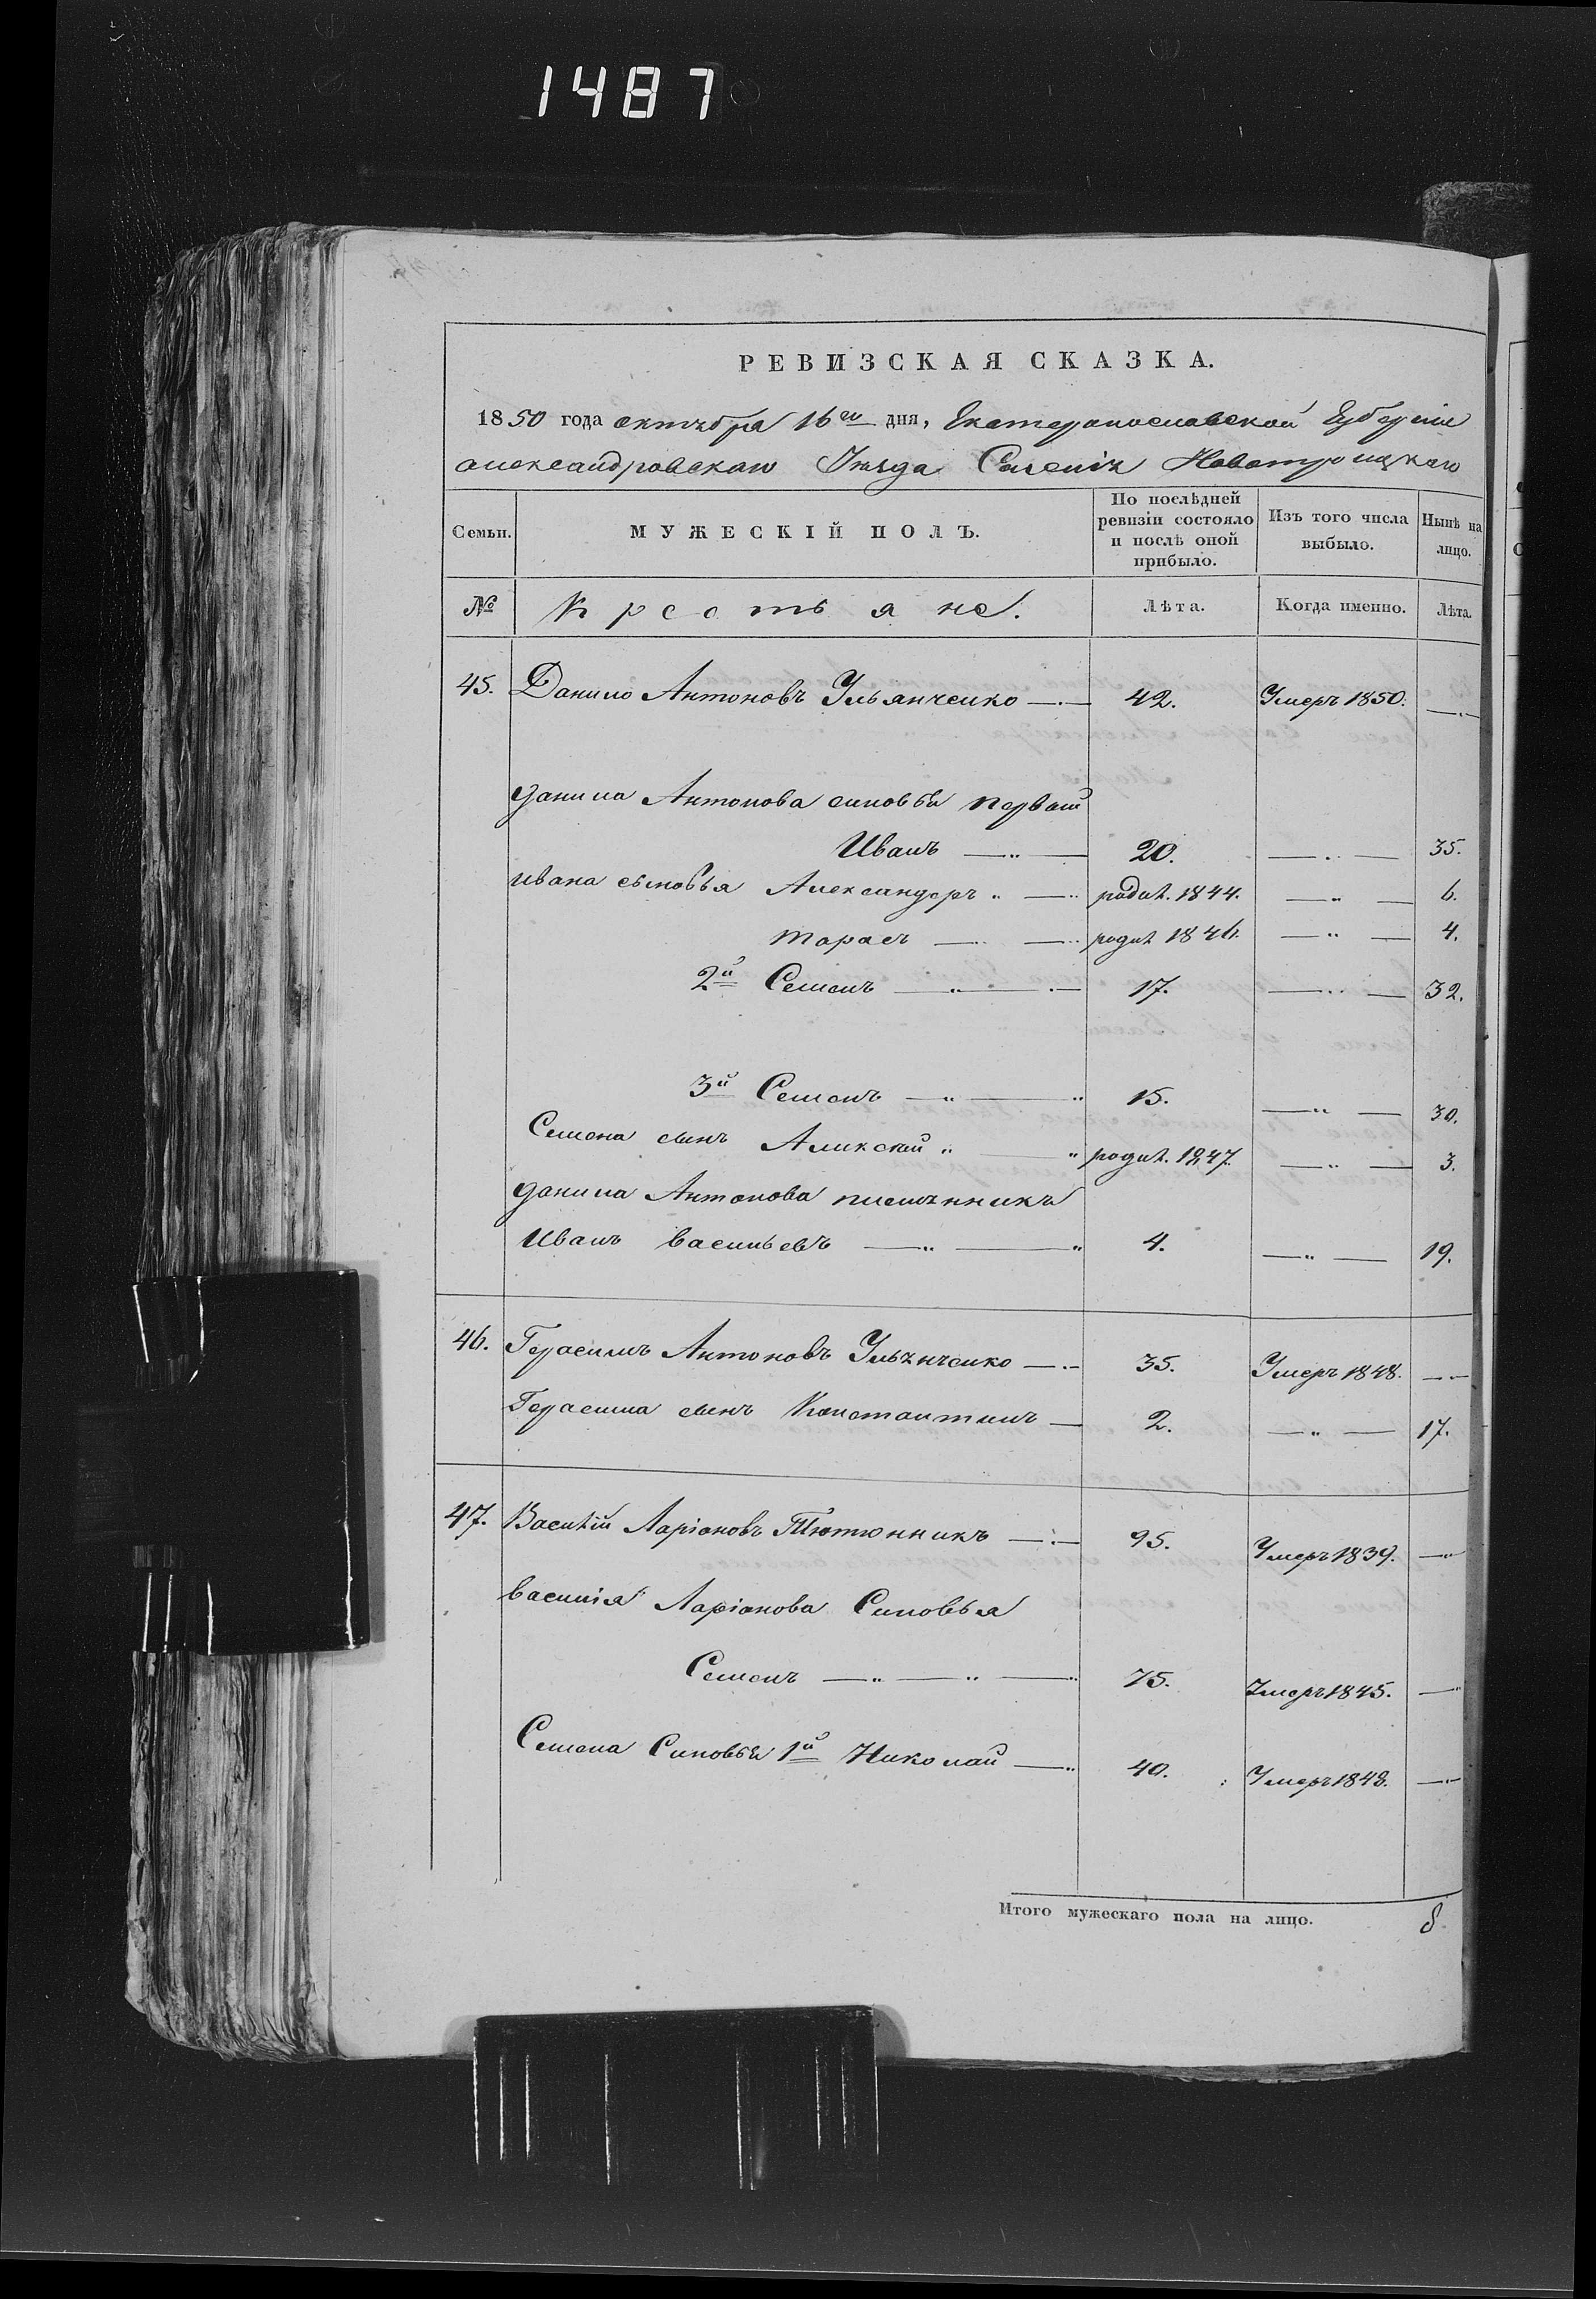 1487
РЕВИЗСКАЯ СКАЗКА.
1850 года октября 16го дня, Екатеринославской Губерніи
александровскаго Уѣзда Селенія Новотроицкаго
Семьи. МУЖЕСКІЙ ПОЛЪ. По послѣдней ревизіи состояло и послѣ оной прибыло. Изъ того числа выбыло. Нынѣ на лицо.
№ Крестьяне. Лѣта. Когда именно. Лѣта.
45. Данило Антоновъ Ульянченко —.— 42. Умеръ 1850. —..—
Данила Антонова синовья первый
Иванъ —..— 20. —..— 35.
Ивана сыновья Александеръ .. —.. родил. 1844. —..— 6.
Тарасъ —.. —.. родил 1846. —..— 4.
2й Семенъ —..—.— 17. —..— 32.
3й Семенъ —..—.. 15. —..— 30.
Семена сынъ Аликсѣй .. —.. родил. 1847. —..— 3.
Данила Антонова племянникъ
Иванъ Васильевъ —..—.. 4. —..— 19.
46. Герасимъ Антоновъ Ульянченко —.— 35. Умеръ 1848. —..—
Герасима сынъ Константинъ — 2. —..— 17.
47. Василій Ларіоновъ Тютюнникъ —:— 95. Умеръ 1839. —..
Василія Ларіонова Синовья
Семенъ —..—..—.. 75. Умеръ 1845. —..
Семена Синовья 1й Николай —.. 40. : Умеръ 1848. —..—
Итого мужескаго пола на лицо. 8.